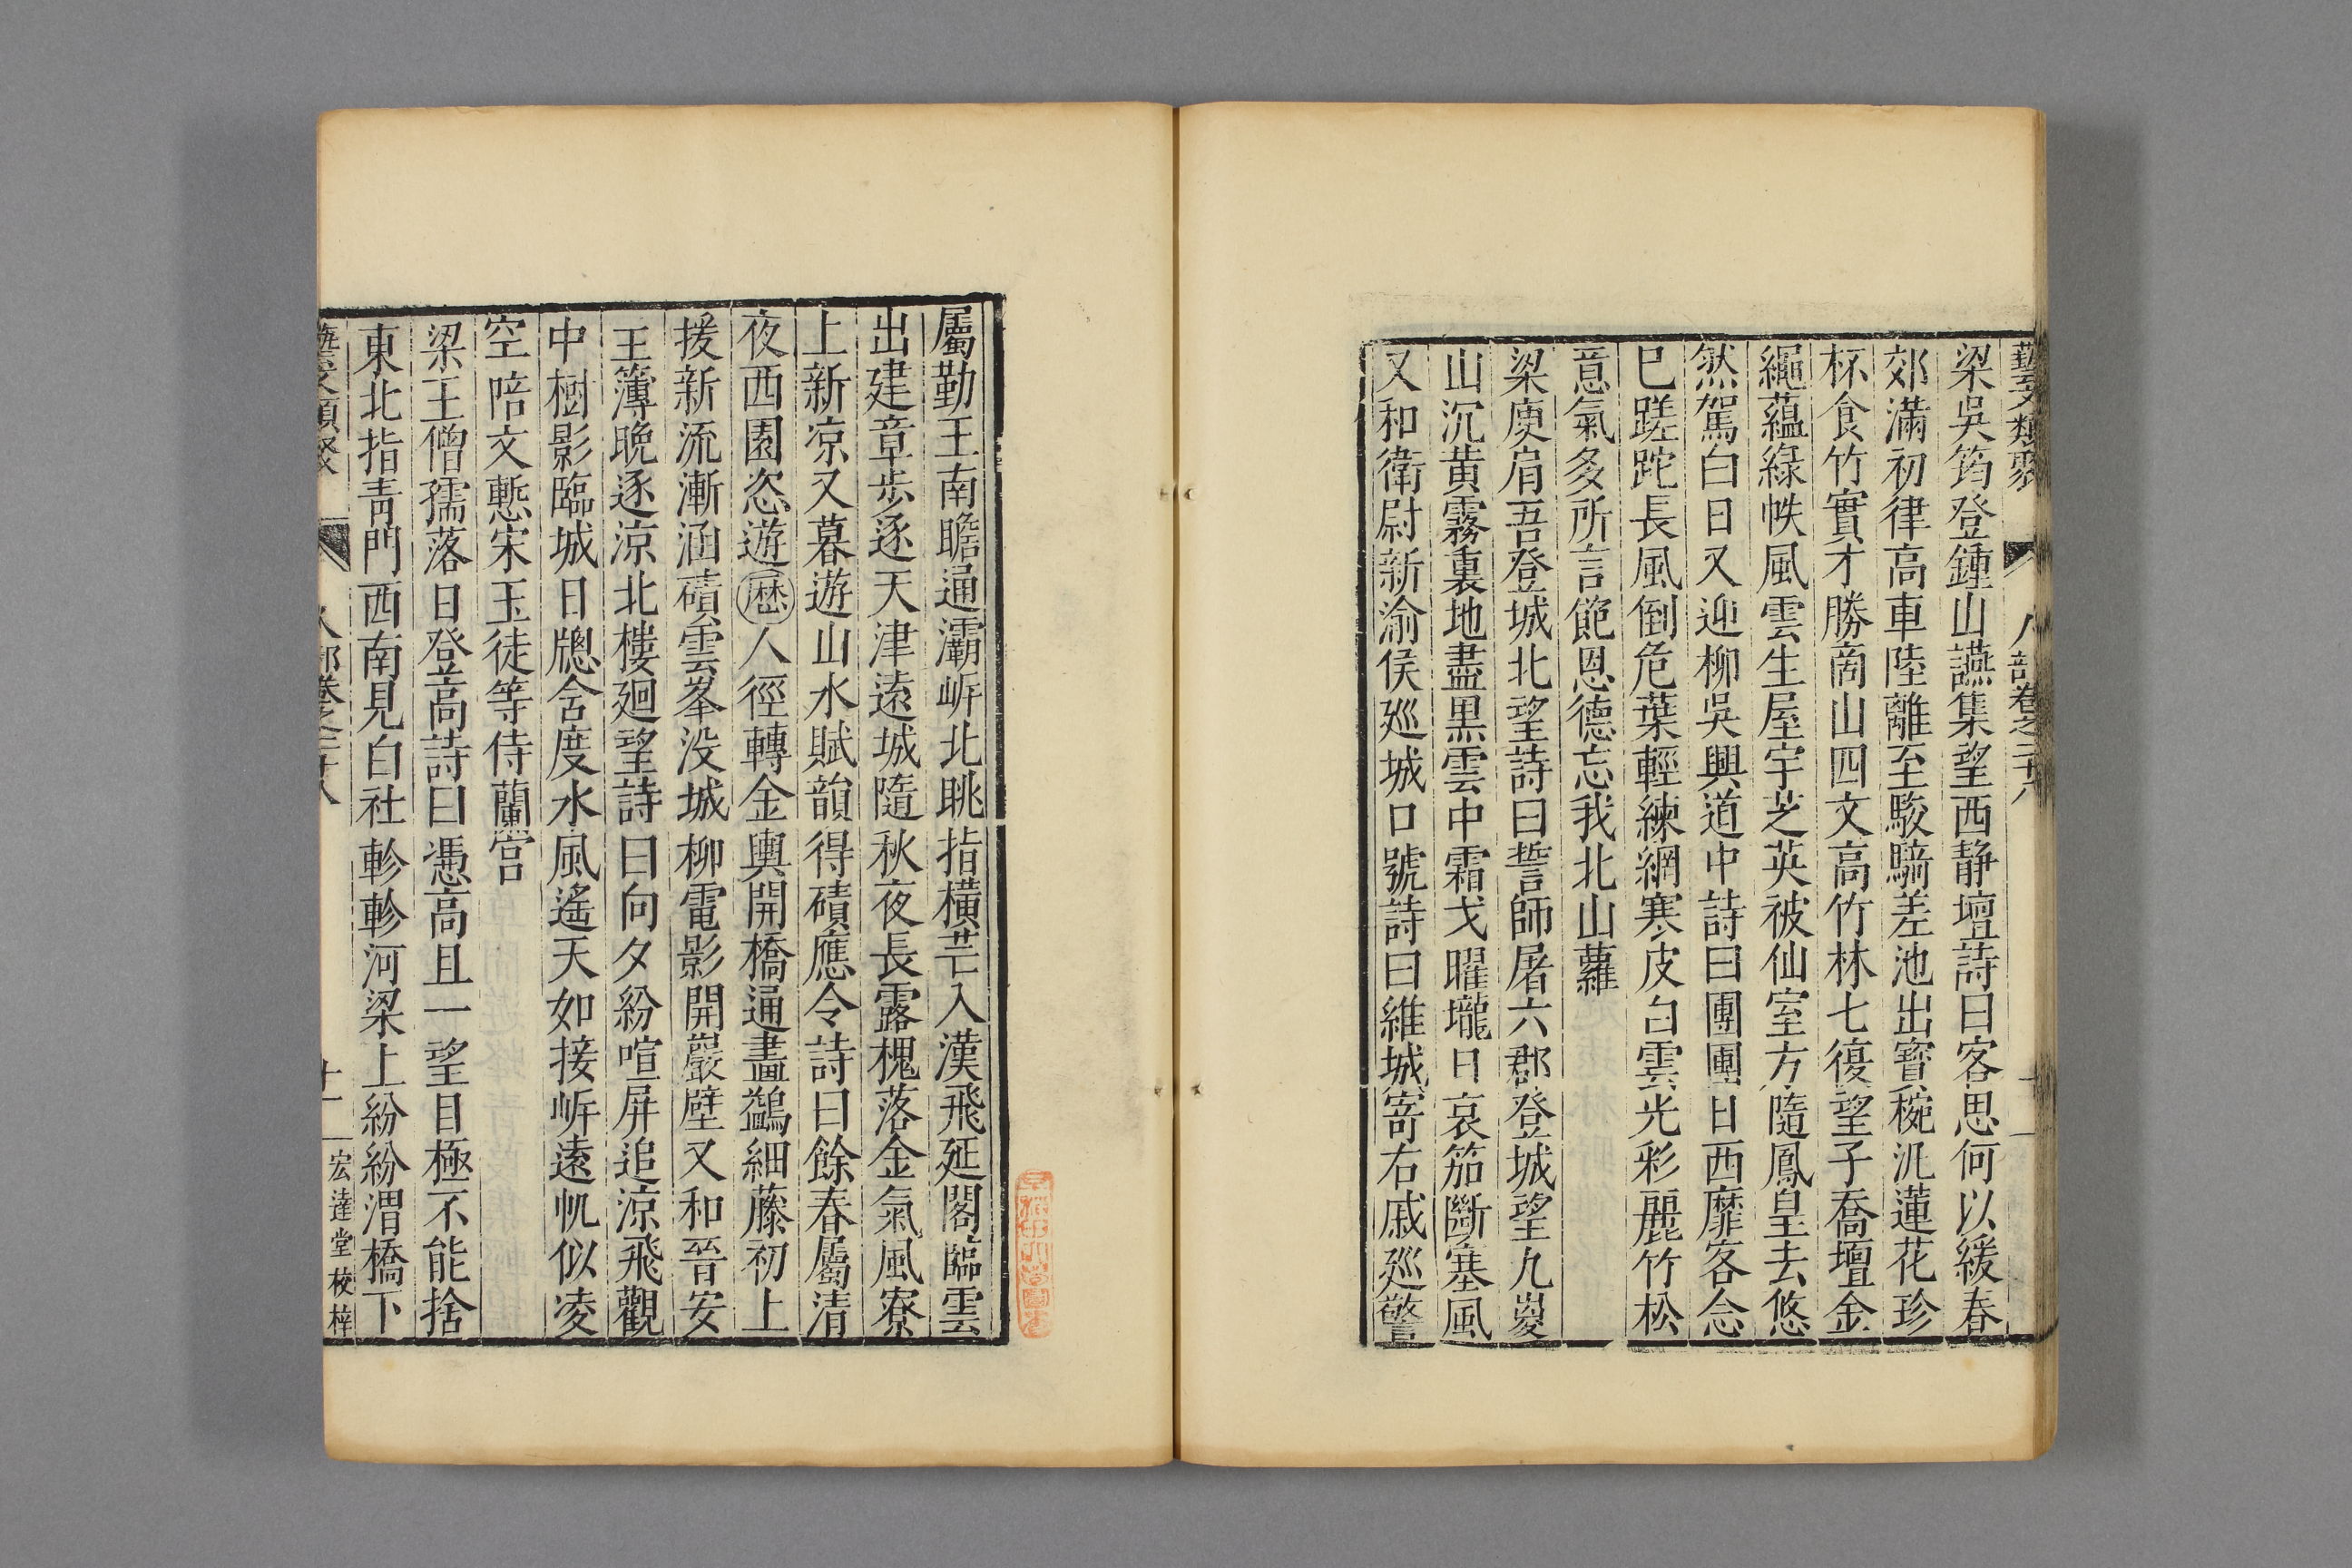 藝文類聚 人部卷之二十八
梁吳筠登鍾山讌集望西靜壇詩曰客思何以緩春
郊滿初律高車陸離至駿騎差池出寳椀泛蓮花珍
杯食竹實才勝商山四文高竹林七復望子喬壇金
繩蘊綠帙風雲生屋宇芝英被仙室方隨鳳皇去悠
然駕白日又迎柳吳興道中詩曰團團日西靡客念
已蹉跎長風倒危葉輕練網寒皮白雲光彩麗竹松
意氣多所言飽恩德忘我北山蘿
梁庾肩吾登城北望詩曰誓師屠六郡登城望九嵏
山沉黃霧裏地盡黑雲中霜戈曜壠日哀笳斷塞風
又和衛尉新渝侯廵城口號詩曰維城寄右戚廵警
屬勤王南瞻通灞岍北眺指橫芒入漢飛延閣臨雲
出建章步逐天津遠城隨秋夜長露槐落金氣風寮
上新凉又暮遊山水賦韻得磧應令詩曰餘春屬清
夜西園恣遊歷人徑轉金輿開橋通畫鷁細藤初上
援新流漸涵磧雲峯没城柳電影開巖壁又和晉安
王簿晚逐凉北樓廻望詩曰向夕紛喧屏追凉飛觀
中樹影臨城日牕含度水風遙天如接岍遠帆似凌
空陪文慙宋玉徒等侍蘭宫
梁王僧孺落日登高詩曰憑高且一望目極不能捨
東北指靑門西南見白社軫軫河梁上紛紛渭橋下
藝文類聚 人部卷之二十八 十一 宏逹堂校梓